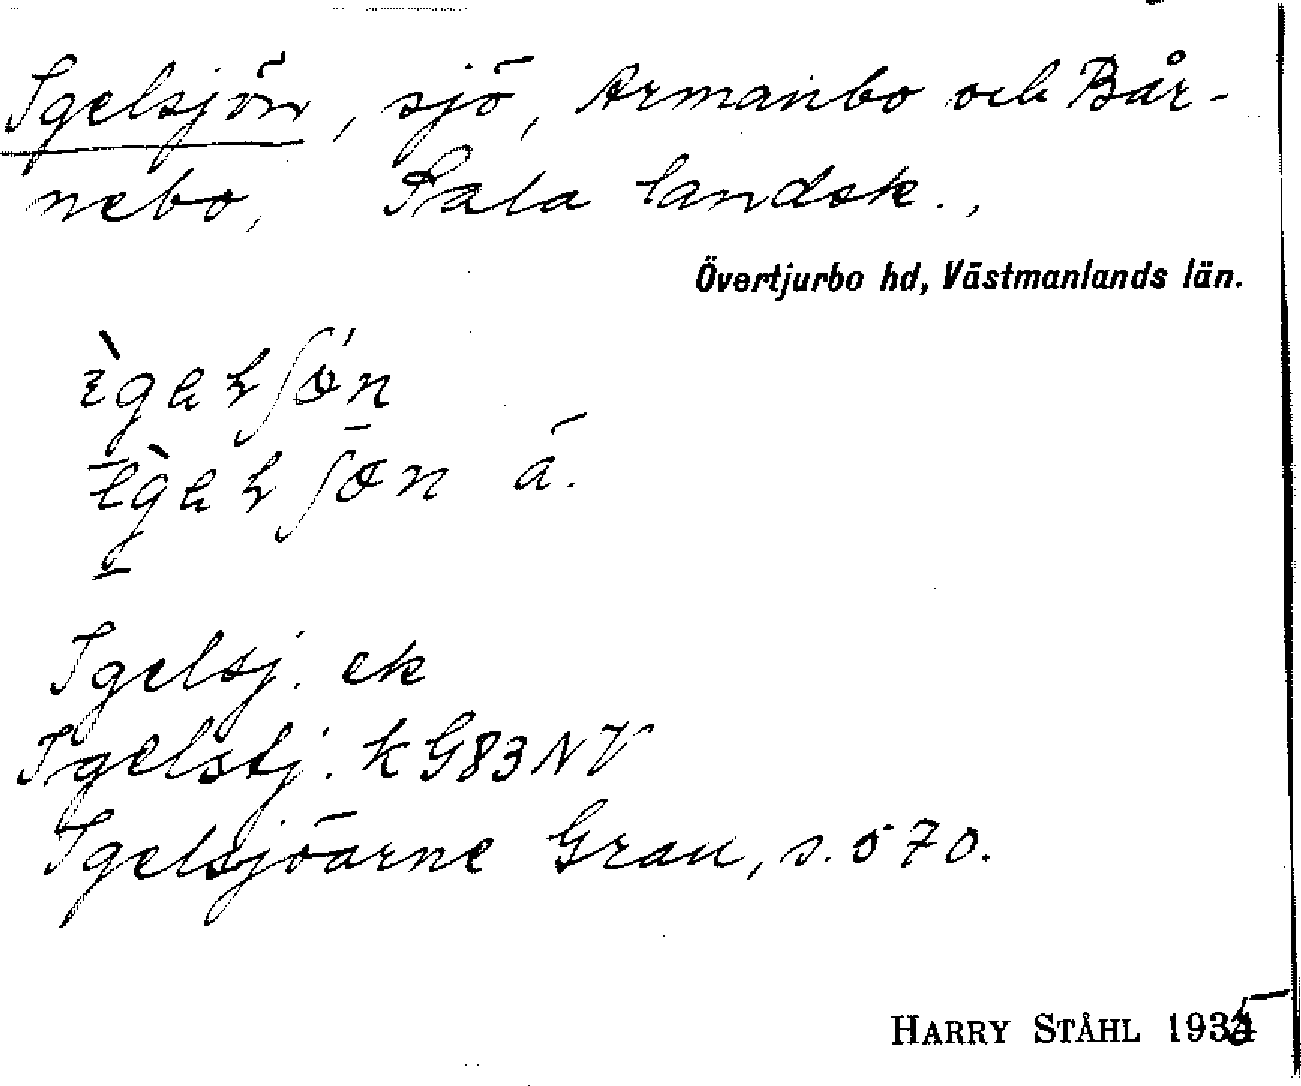 Igelsjön, sjö, Armanbo och Bår-
nebo, Sala landsk.,
Övertjurbo hd, Västmanlands län.
á.
Igelsj. ek
Igelstj. k G83NV
Igelsjöarne Grau, s. 570.
HARRY STÅHL 1935